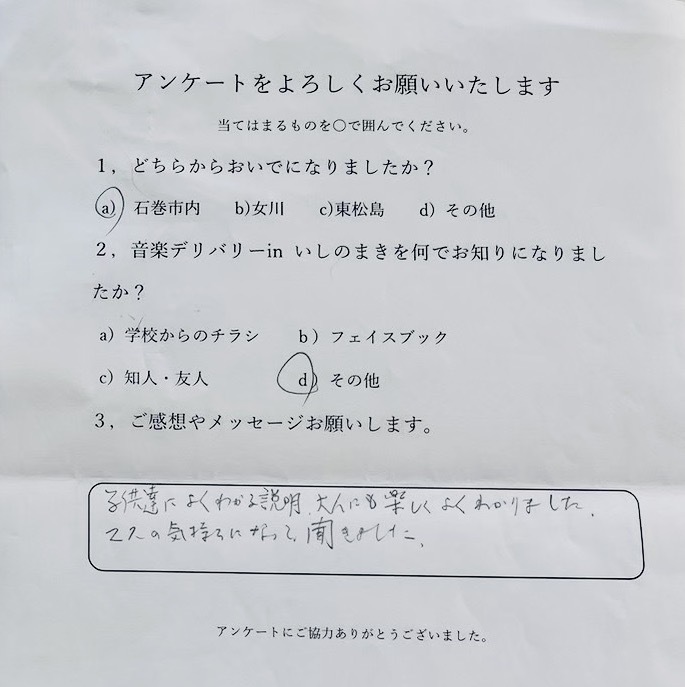 アンケートをよろしくお願いいたします
当てはまるものを○で囲んでください。
1，どちらからおいでになりましたか？
a) 石巻市内 b)女川 c)東松島 d) その他
2，音楽デリバリーin いしのまきを何でお知りになりまし
たか？
a) 学校からのチラシ b) フェイスブック
c) 知人・友人 d) その他
3，ご感想やメッセージお願いします。
子供達によくわかる説明、大人にも楽しくよくわかりました。
の気持ちになって聞きました。
アンケートにご協力ありがとうございました。